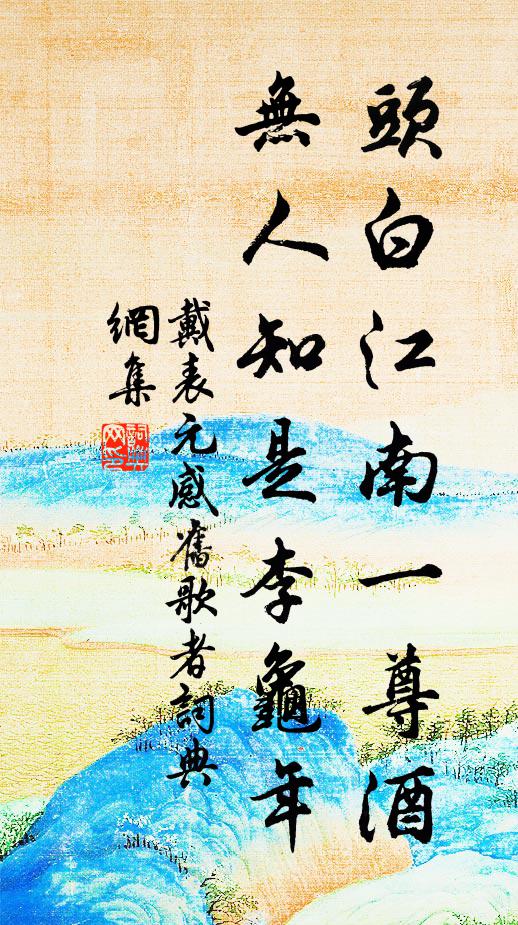 頭白江南一尊酒
無人知是李龜年
戴表元感舊歌者詞典
網集